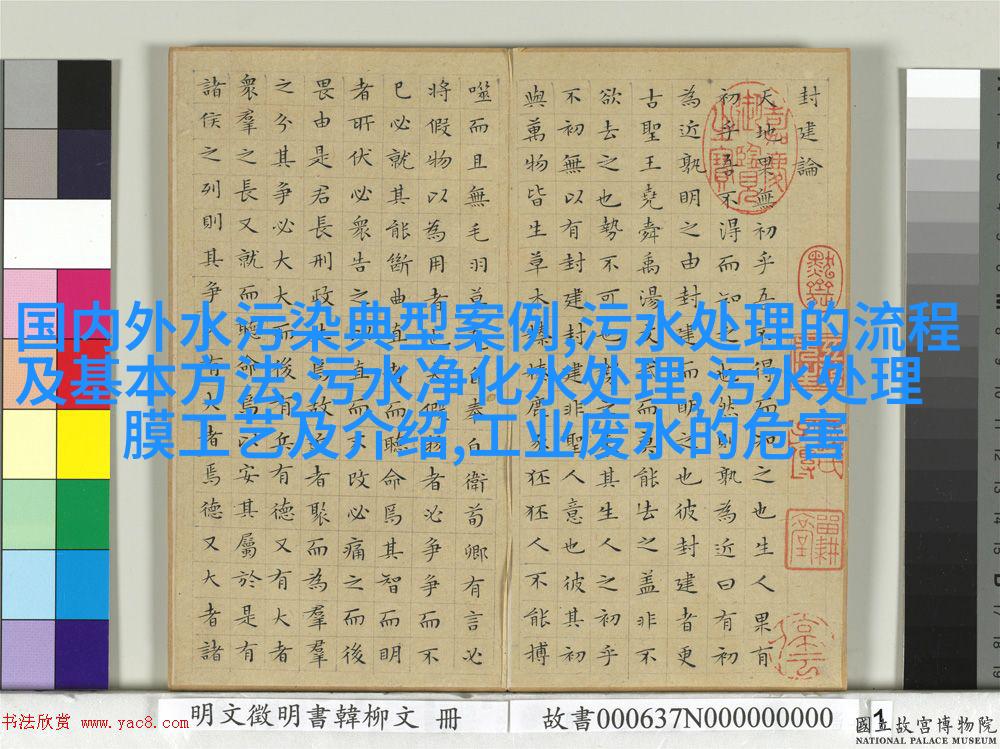 封建論
天地果無初乎吾不得而知之也生人果有
初乎吾不得而知之也然則孰為近曰有初
為近孰明之由封建而明之也彼封建者更
古聖王堯舜禹湯文武而莫能去之蓋非不
欲去之也勢不可也勢之來其生人之初乎
不初無以有封建封建非聖人意也彼其初
與萬物皆生草木榛榛鹿豕狉狉人不能搏
噬而且無毛羽莫克自奉自衛荀卿有言必
將假物以為用者也夫假物者必爭爭而不
已必就其能斷曲直者而聽命焉其智而明
者所伏必眾告之以直而不改必痛之而後
畏由是君長刑政生焉故近者聚而為羣
之分其爭必大大而後有兵有德又有大者
眾羣之長又就而聽命焉以安其屬於是有
諸侯之列則其爭又有大者焉德又大者諸
国内外水污染典型案例,污水处理的流程
及基本方法,污水净化水处理,污水处理
膜工艺及介绍,工业废水的危害
书法欣赏 www.yac8.com
明文徵明書韓柳文 冊
故書000637N000000000
1
國立故宮博物院
NATIONAL PALACE MUSEUM